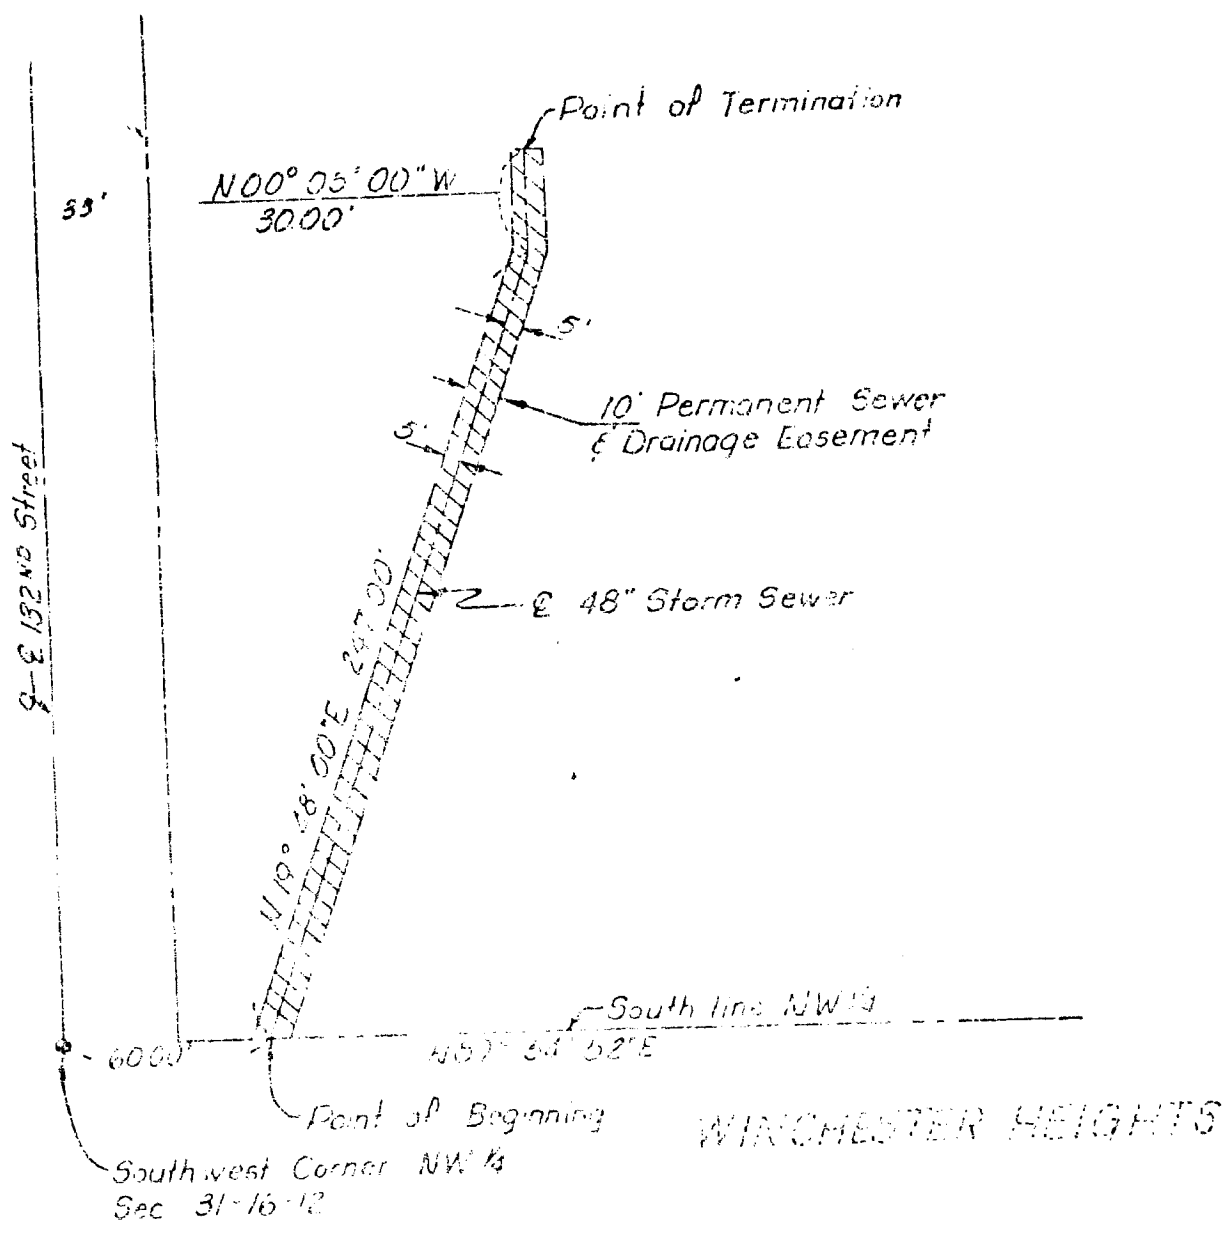 Point of Termination
N00° 05' 00" W
30.00'
33'
5'
10' Permanent Sewer
& Drainage Easement
5'
℄ 132ND Street
℄ 48" Storm Sewer
N 19° 48' 00" E 247.00'
South line NW 1/4
60.00'
52" E
Point of Beginning
WINCHESTER HEIGHTS
Southwest Corner NW 1/4
Sec 31-16-12